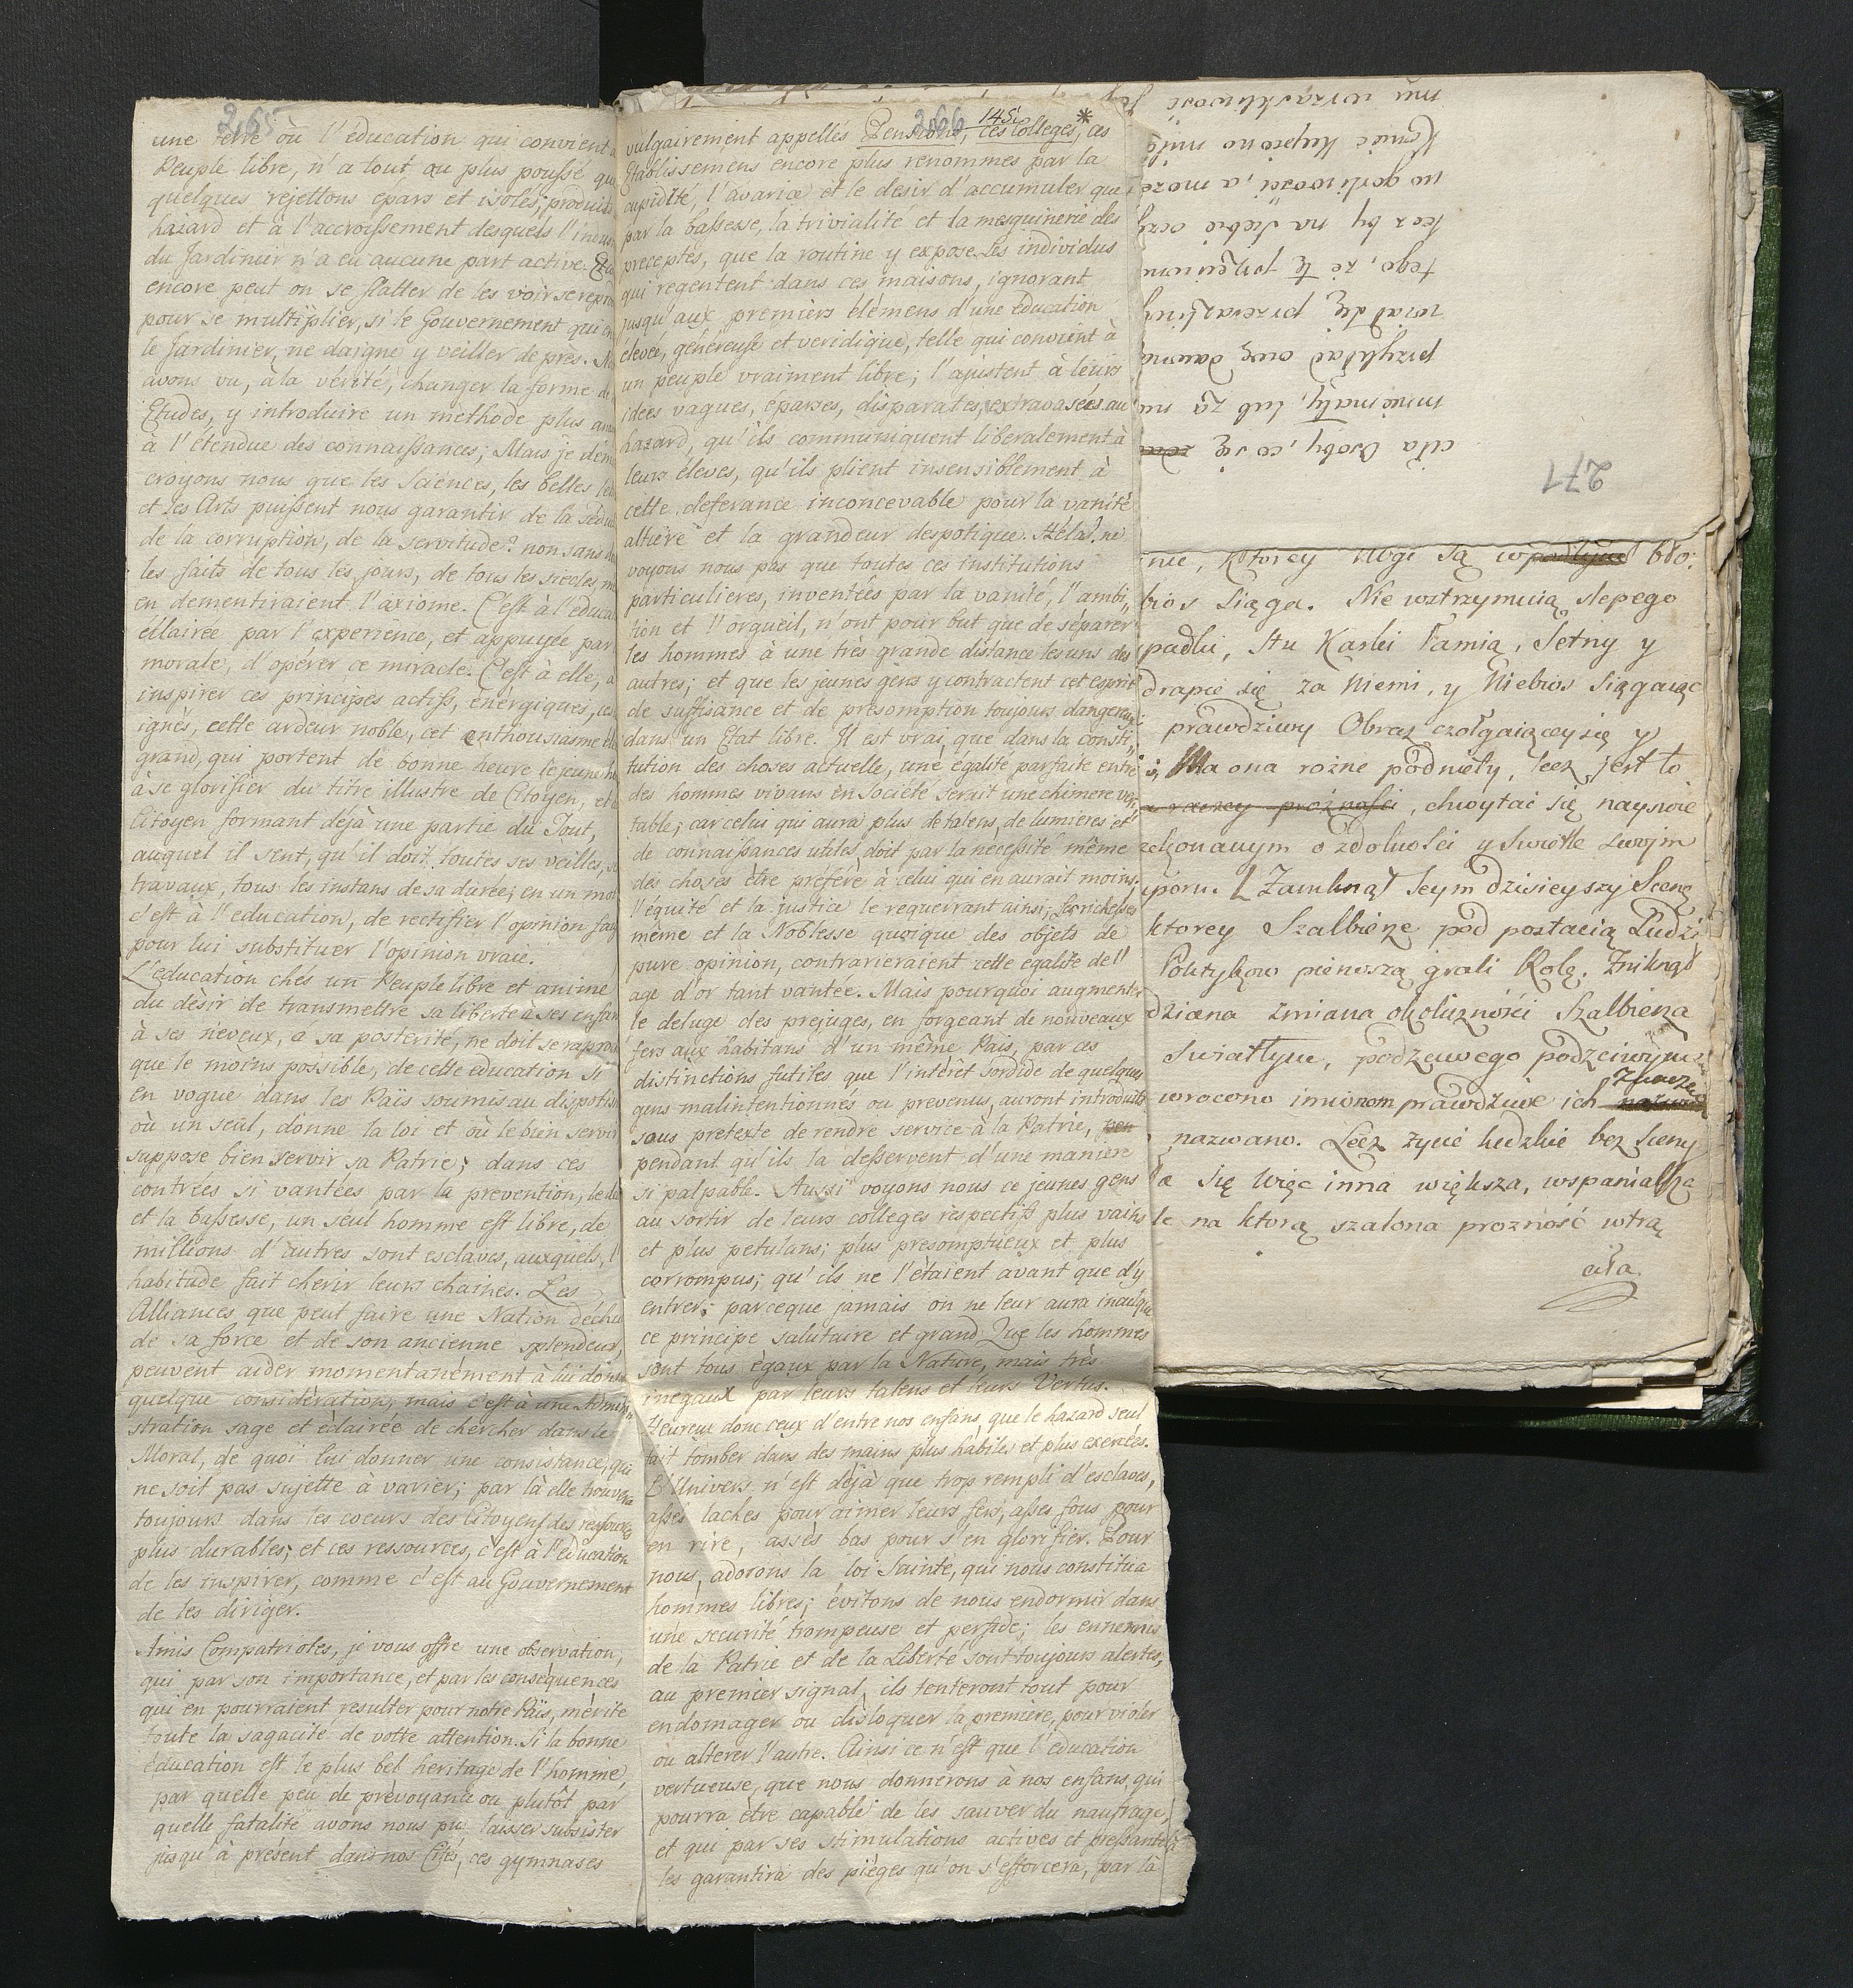 265
une terre où l'éducation qui convient à
Peuple libre, n'a tout au plus poussé que
quelques rejettons épars et isolés, produits
hazard et à l'accroissement desquels l'indus
du Jardinier n'a eu aucune part active.
encore peut on se flatter de les voir se repro
pour se multiplier, si le Gouvernement qui en
le Jardinier, ne daigne y veiller de près. No
avons vu, à la vérité, changer la forme de
Etudes, y introduire un methode plus ana
à l'étendue des connaissances; Mais je dem
croyons nous que les Sciences, les belles let
et les Arts puissent nous garantir de la sédu
de la corruption, de la servitude? non sans
les faits de tous les jours, de tous les siecles
en dementiraient l'axiome. C'est à l'educa
éclairée par l'experience, et appuyée par
morale, d'opérer ce miracle. C'est à elle, à
inspirer ces principes actifs, énérgiques, ces
ignés, cette ardeur noble, cet enthousiasme
grand, qui portent de bonne heure le jeune ho
à se glorifier du titre illustre de Citoyen, et
Citoyen formant déjà une partie du Tout,
auquel il sent, qu'il doit toutes ses veilles,
travaux, tous les instans de sa durée; en un mot
c'est à l'education, de rectifier l'opinion fau
pour lui substituer l'opinion vraie.
L'education chés un Peuple libre et animé
du désir de transmettre sa liberté à ses enfan
à ses neveux, à sa posterité, ne doit se raproc
que le moins possible, de cette education si
en vogue dans les Païs soumis au dispotis
où un seul, donne la loi et où le bien servir
suppose bien servir sa Patrie; dans ces
contrées si vantées par la prevention,
et la bassesse, un seul homme est libre, de
millions d'autres sont esclaves, auxquels, l'
habitude fait cherir leurs chaines. Les
Alliances que peut faire une Nation déchu
de sa force et de son ancienne splendeur,
peuvent aider momentanément à lui donn
quelque considération, mais c'est à une Admini
stration sage et éclairée de chercher dans le
Moral, de quoi lui donner une consistance, qui
ne soit pas sujette à varier; par là elle trouvera
toujours dans les coeurs des Citoyens des ressources
plus durables; et ces ressources, c'est à l'education
de les inspirer, comme c'est au Gouvernement
de les diriger.
Amis Compatriotes, je vous offre une observation,
qui par son importance, et par les conséquences
qui en pourraient resulter pour notre Païs, mérite
toute la sagacité de votre attention. Si la bonne
éducation est le plus bel heritage de l'homme,
par quelle peu de prévoyance ou plutôt par
quelle fatalité avons nous pu laisser subsister
jusqu'à présent dans nos Cités, ces gymnases
266
145
vulgairement appellés Pensions, ces Colleges,* ces
Etablissemens encore plus renommes par la
cupidité, l'avarice et le desir d'accumuler que
par la bassesse, la trivialité et la mesquinerie des
preceptes, que la routine y expose. Les individus
qui regentent dans ces maisons, ignorant
jusqu'aux premiers élémens d'une éducation
elevée, généreuse et veridique, telle qui convient à
un peuple vraiment libre; l'ajustent à leurs
idées vagues, eparses, disparates, extravasées au
hazard, qu'ils communiquent liberalement à
leurs éleves, qu'ils plient insensiblement à
cette deferance inconcevable pour la vanité
altière et la grandeur despotique. Hélas! ne
voyons nous pas que toutes ces institutions
particulieres, inventées par la vanité, l'ambi„
tion et l'orgueil, n'ont pour but que de séparer
les hommes à une très grande distance les uns des
autres; et que les jeunes gens y contractent cet esprit
de suffisance et de présomption toujours dangereux
dans un Etat libre. Il est vrai, que dans la consti„
tution des choses actuelle, une égalité parfaite entre
des hommes vivans en société serait une chimere veri„
table; car celui qui aura plus de talens, de lumieres et
de connaissances utiles, doit par la necessité même
des choses être préféré à celui qui en aurait moins;
l'équité et la justice le requerrant ainsi; Les richesses
même et la Noblesse quoique des objets de
pure opinion, contrarieraient cette egalité de l'
age d'or tant vantée. Mais pourquoi augmenter
le deluge des prejuges, en forgeant de nouveaux
fers aux habitans d'un même Païs, par ces
distinctions futiles que l'intérêt sordide de quelques
gens malintentionnés ou prevenus, auront introduits
sous pretexte de rendre service à la Patrie, pen
pendant qu'ils la desservent d'une maniere
si palpable. Aussi voyons nous ce jeunes gens
au sortir de leurs colleges respectifs plus vains
et plus petulans; plus presomptueux et plus
corrompus; qu'ils ne l'étaient avant que d'y
entrer; parceque jamais on ne leur aura inculqué
ce principe salutaire et grand Que les hommes
sont tous égaux par la Nature, mais très
inegaux par leurs talens et leurs Vertus.
Heureux donc ceux d'entre nos enfans, que le hazard seul
fait tomber dans des mains plus habiles et plus exercées.
L'Univers n'est déjà que trop rempli d'esclaves,
assés laches pour aimer leurs fers, asses fous pour
en rire, assés bas pour s'en glorifier. Pour
nous, adorons la loi Sainte, qui nous constitua
hommes libres; évitons de nous endormir dans
une securité trompeuse et perfide; les ennemis
de la Patrie et de la Liberté sont toujours alertes,
au premier signal, ils tenteront tout pour
endomager ou disloquer la première, pour violer
ou alterer l'autre. Ainsi ce n'est que l'éducation
vertueuse, que nous donnerons à nos enfans, qui
pourra être capable de les sauver du naufrage,
et qui par ses stimulations actives et pressante
les garantira des pièges qu'on s'efforcera, par là
271
ciła Osoby, co się
mniemały, lub za
przykład owę dawną
wiał się przeraźliwy
tego, że tę
lecz by na siebie oczy
w gorliwości, a może
Koniec kupiono
mu wrzaskliwość
nie, ktorey Nogi są bło:
bios siąga. Nie wstrzymuią slepego
padki, stu Karki łamią, setny y
drapie się za Niemi, y Niebios siągaiąc
prawdziwy Obraz czołgaiącey się y
Ma ona rożne podniety, lecz jest to
prożności, chwytać się
zekonanym o zdolności y swietle swojm
uporu. Zamknął Seym dzisieyszy Scenę
ktorey Szalbierze pod postacią Ludzi
Politykow pierwszą grali Rolę. Zniknął
dziana zmiana okoliczności Szalbierza
Swiatłym, podzciwego podzciwym
wrocono imionom prawdziwe ich Znacze
nazwano. Lecz życie ludzkie bez Sceny
a się więc inna większa, wspanialsza
le na ktorą szalona prozność wtrą
ciła